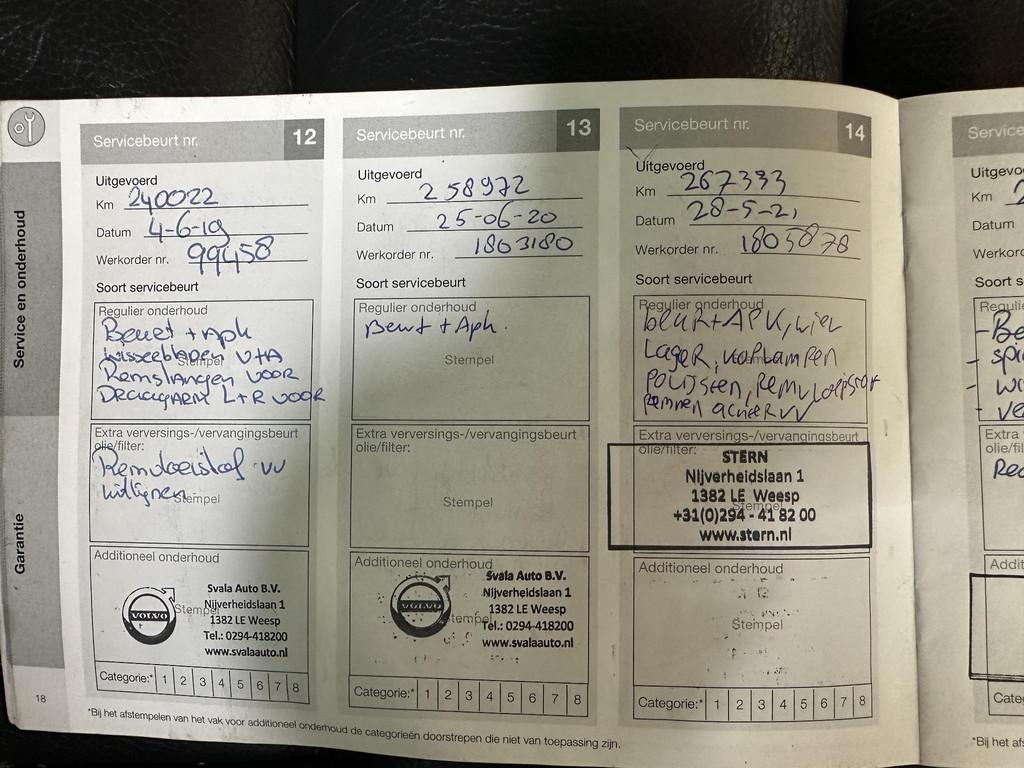 Service en onderhoud
Garantie
18
Servicebeurt nr. 12
Uitgevoerd
Km 240022
Datum 4-6-19
Werkorder nr. 99458
Soort servicebeurt
Regulier onderhoud
Beurt + apk
wisserbladen V+A
Remslangen VOOR
DRAAGARM L+R VOOR
Stempel
Extra verversings-/vervangingsbeurt
olie/filter:
Remvloeistof vv
uitlijnen
Stempel
Additioneel onderhoud
VOLVO
Svala Auto B.V.
Nijverheidslaan 1
1382 LE Weesp
Tel.: 0294-418200
www.svalaauto.nl
Stempel
Categorie:* 1 2 3 4 5 6 7 8
Servicebeurt nr. 13
Uitgevoerd
Km 258972
Datum 25-06-20
Werkorder nr. 1803180
Soort servicebeurt
Regulier onderhoud
Beurt + Apk.
Stempel
Extra verversings-/vervangingsbeurt
olie/filter:
Stempel
Additioneel onderhoud
VOLVO
Svala Auto B.V.
Nijverheidslaan 1
1382 LE Weesp
Tel.: 0294-418200
www.svalaauto.nl
Stempel
Categorie:* 1 2 3 4 5 6 7 8
Servicebeurt nr. 14
Uitgevoerd
Km 267333
Datum 28-5-21
Werkorder nr. 1805878
Soort servicebeurt
Regulier onderhoud
beurt+APK, wiel
Lager, koplampen
POLIJSTEN, Remvloeistof
Remmen achter vv
Extra verversings-/vervangingsbeurt
olie/filter:
STERN
Nijverheidslaan 1
1382 LE Weesp
+31(0)294 - 41 82 00
www.stern.nl
Stempel
Additioneel onderhoud
Stempel
Categorie:* 1 2 3 4 5 6 7 8
*Bij het afstempelen van het vak voor additioneel onderhoud de categorieën doorstrepen die niet van toepassing zijn.
Service
Uitgevo
Km
Datum
Werkord
Soort s
Regulie
-Be
- spi
- wi
- ve
Extra
olie/fil
Rec
Addit
Cate
*Bij het af